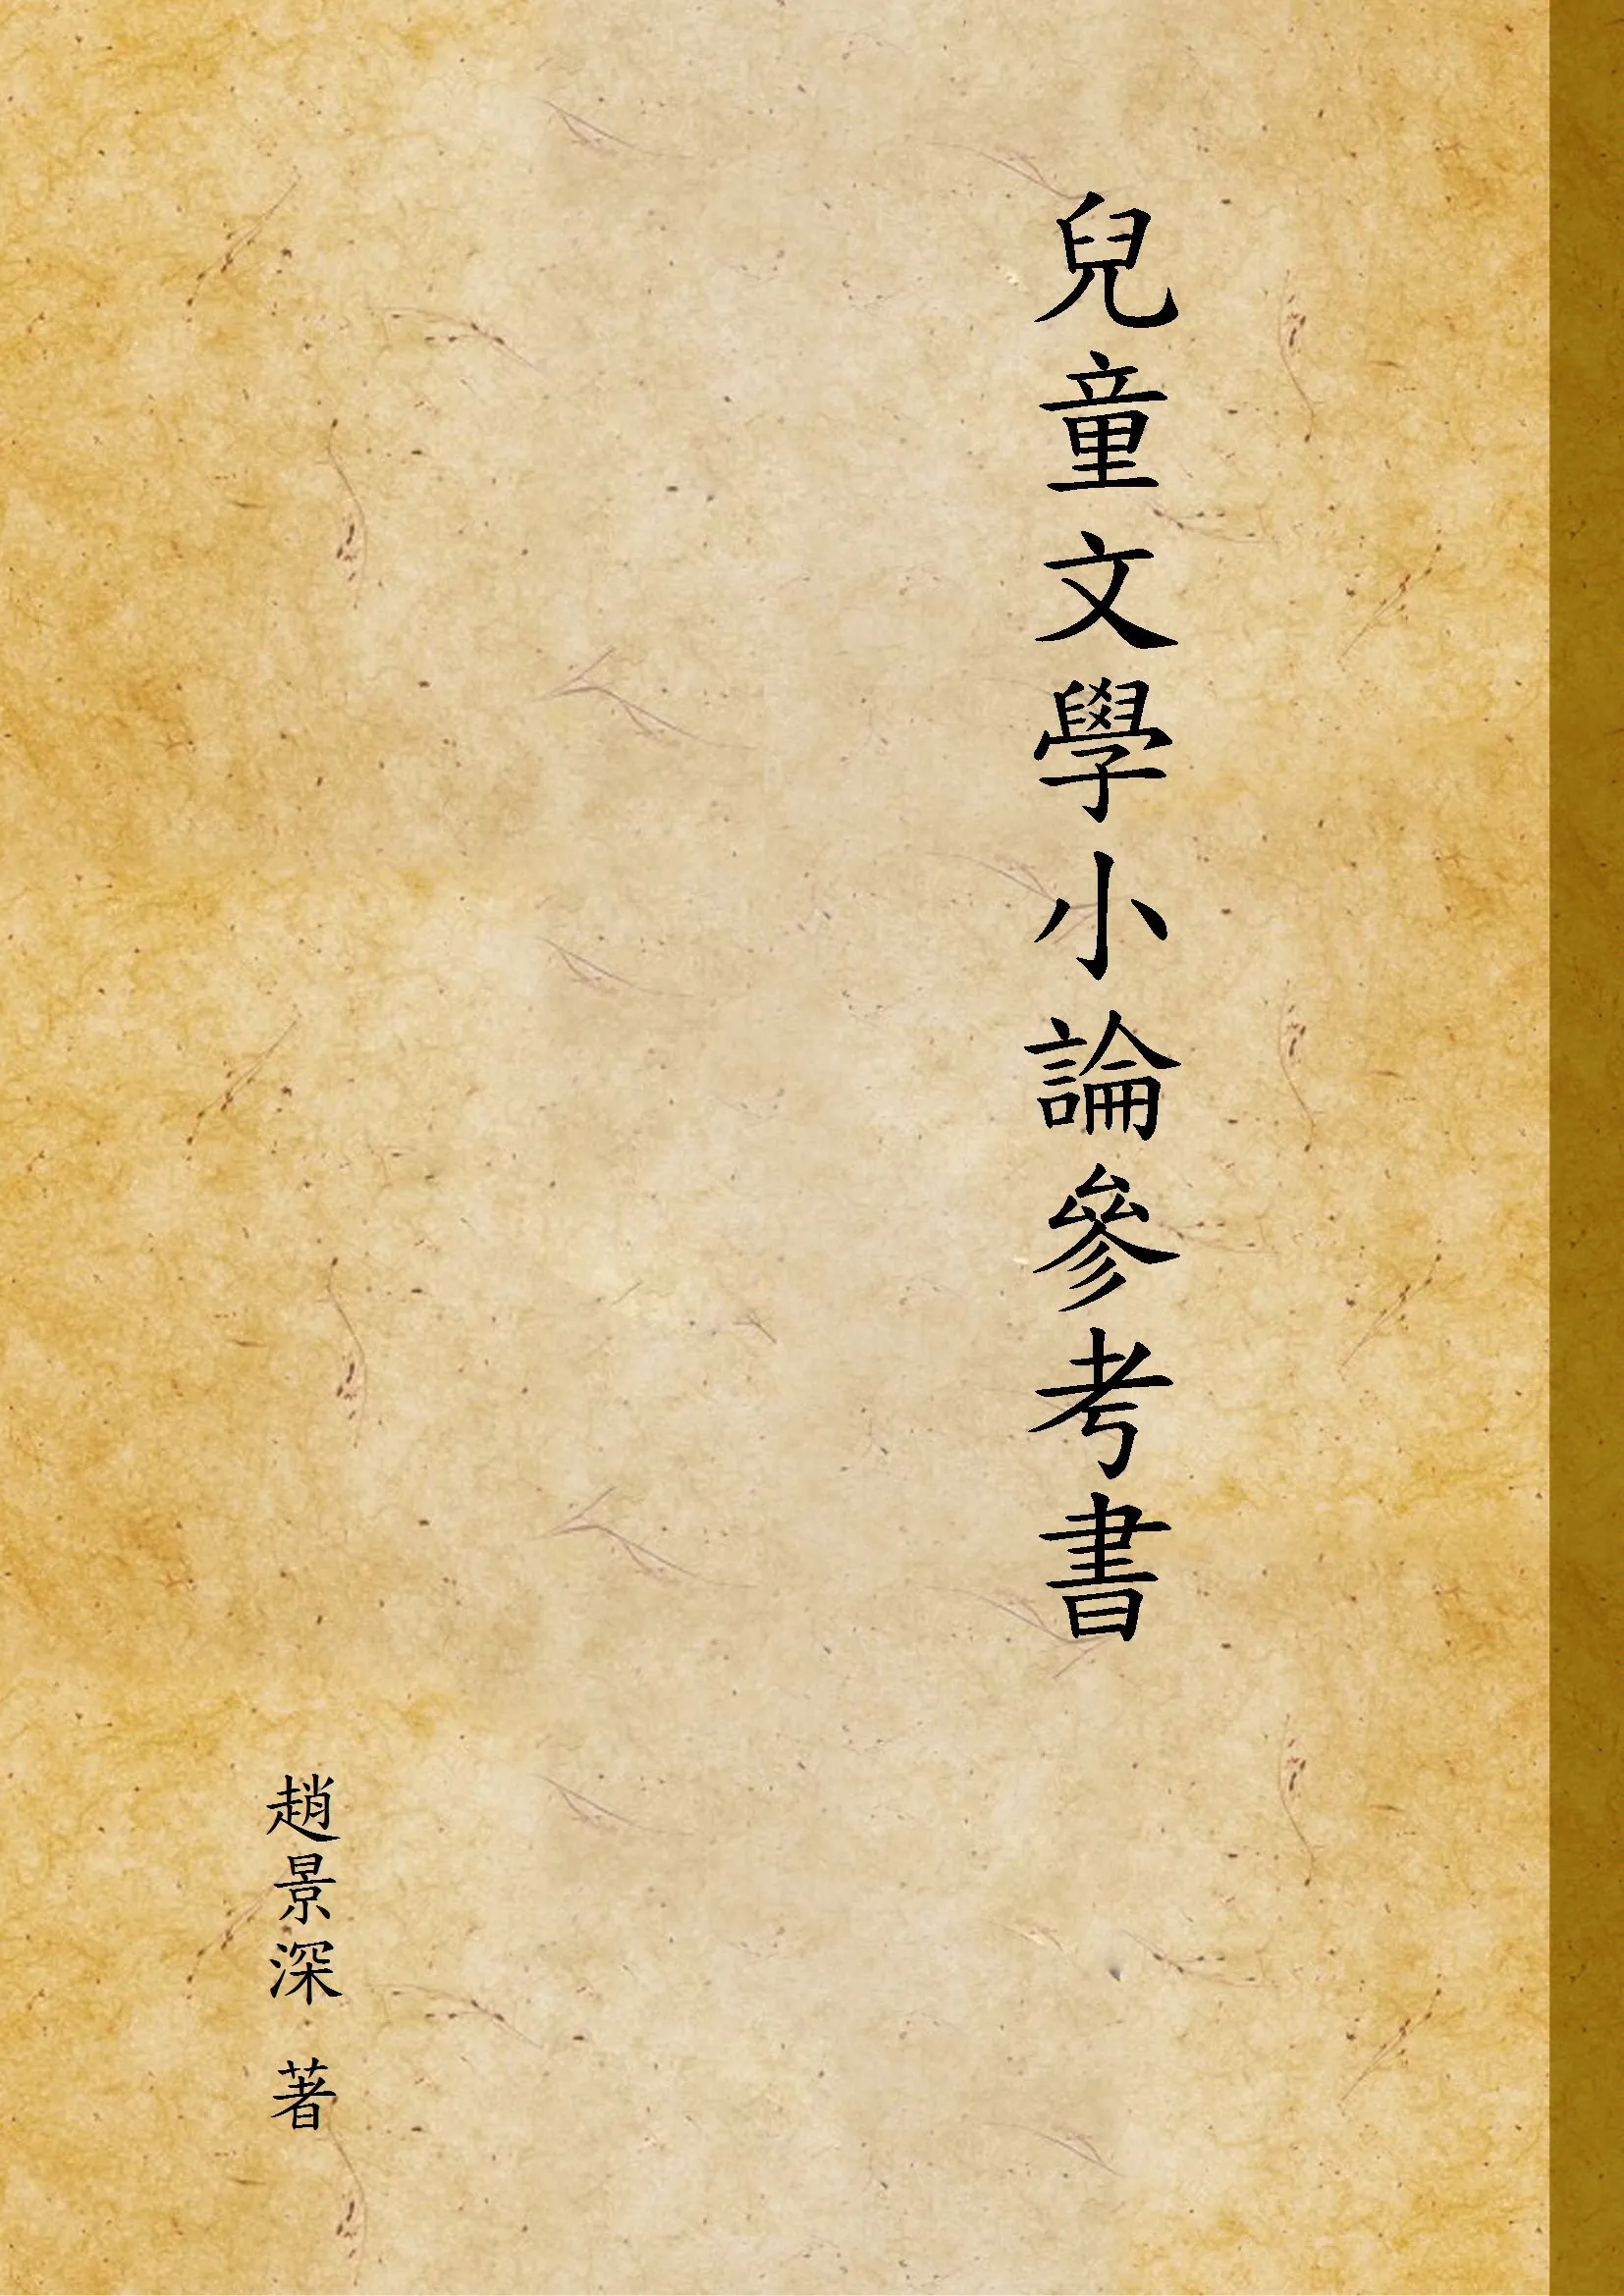 兒童文學小論參考書
趙景深 著